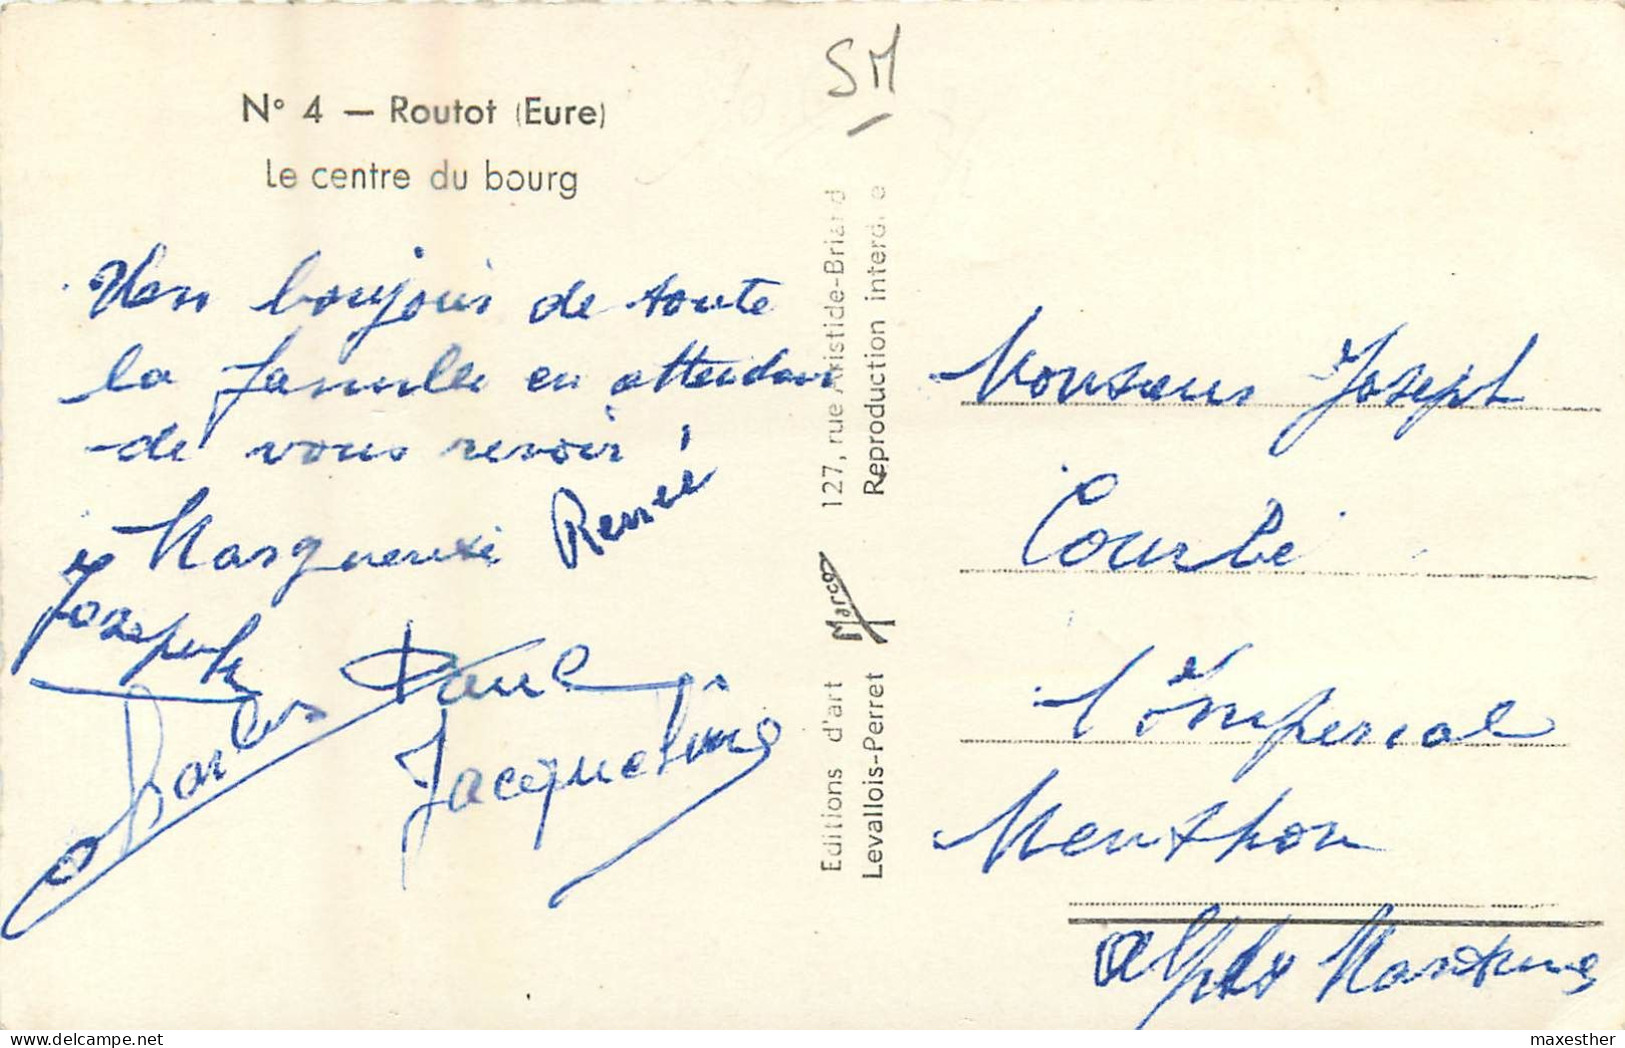 SM
N° 4 — Routot (Eure)
Le centre du bourg
bonjour de toute
la famille en attendant
de vous revoir !
Marguerite Renée
Joseph
Paul
Charles
Jacqueline
127, rue Aristide-Briand
Reproduction interdite
Marco
Editions d'art
Levallois-Perret
Monsieur Joseph
Courbé
l'Impérial
Menthon
Alpes Maritimes
maxesther